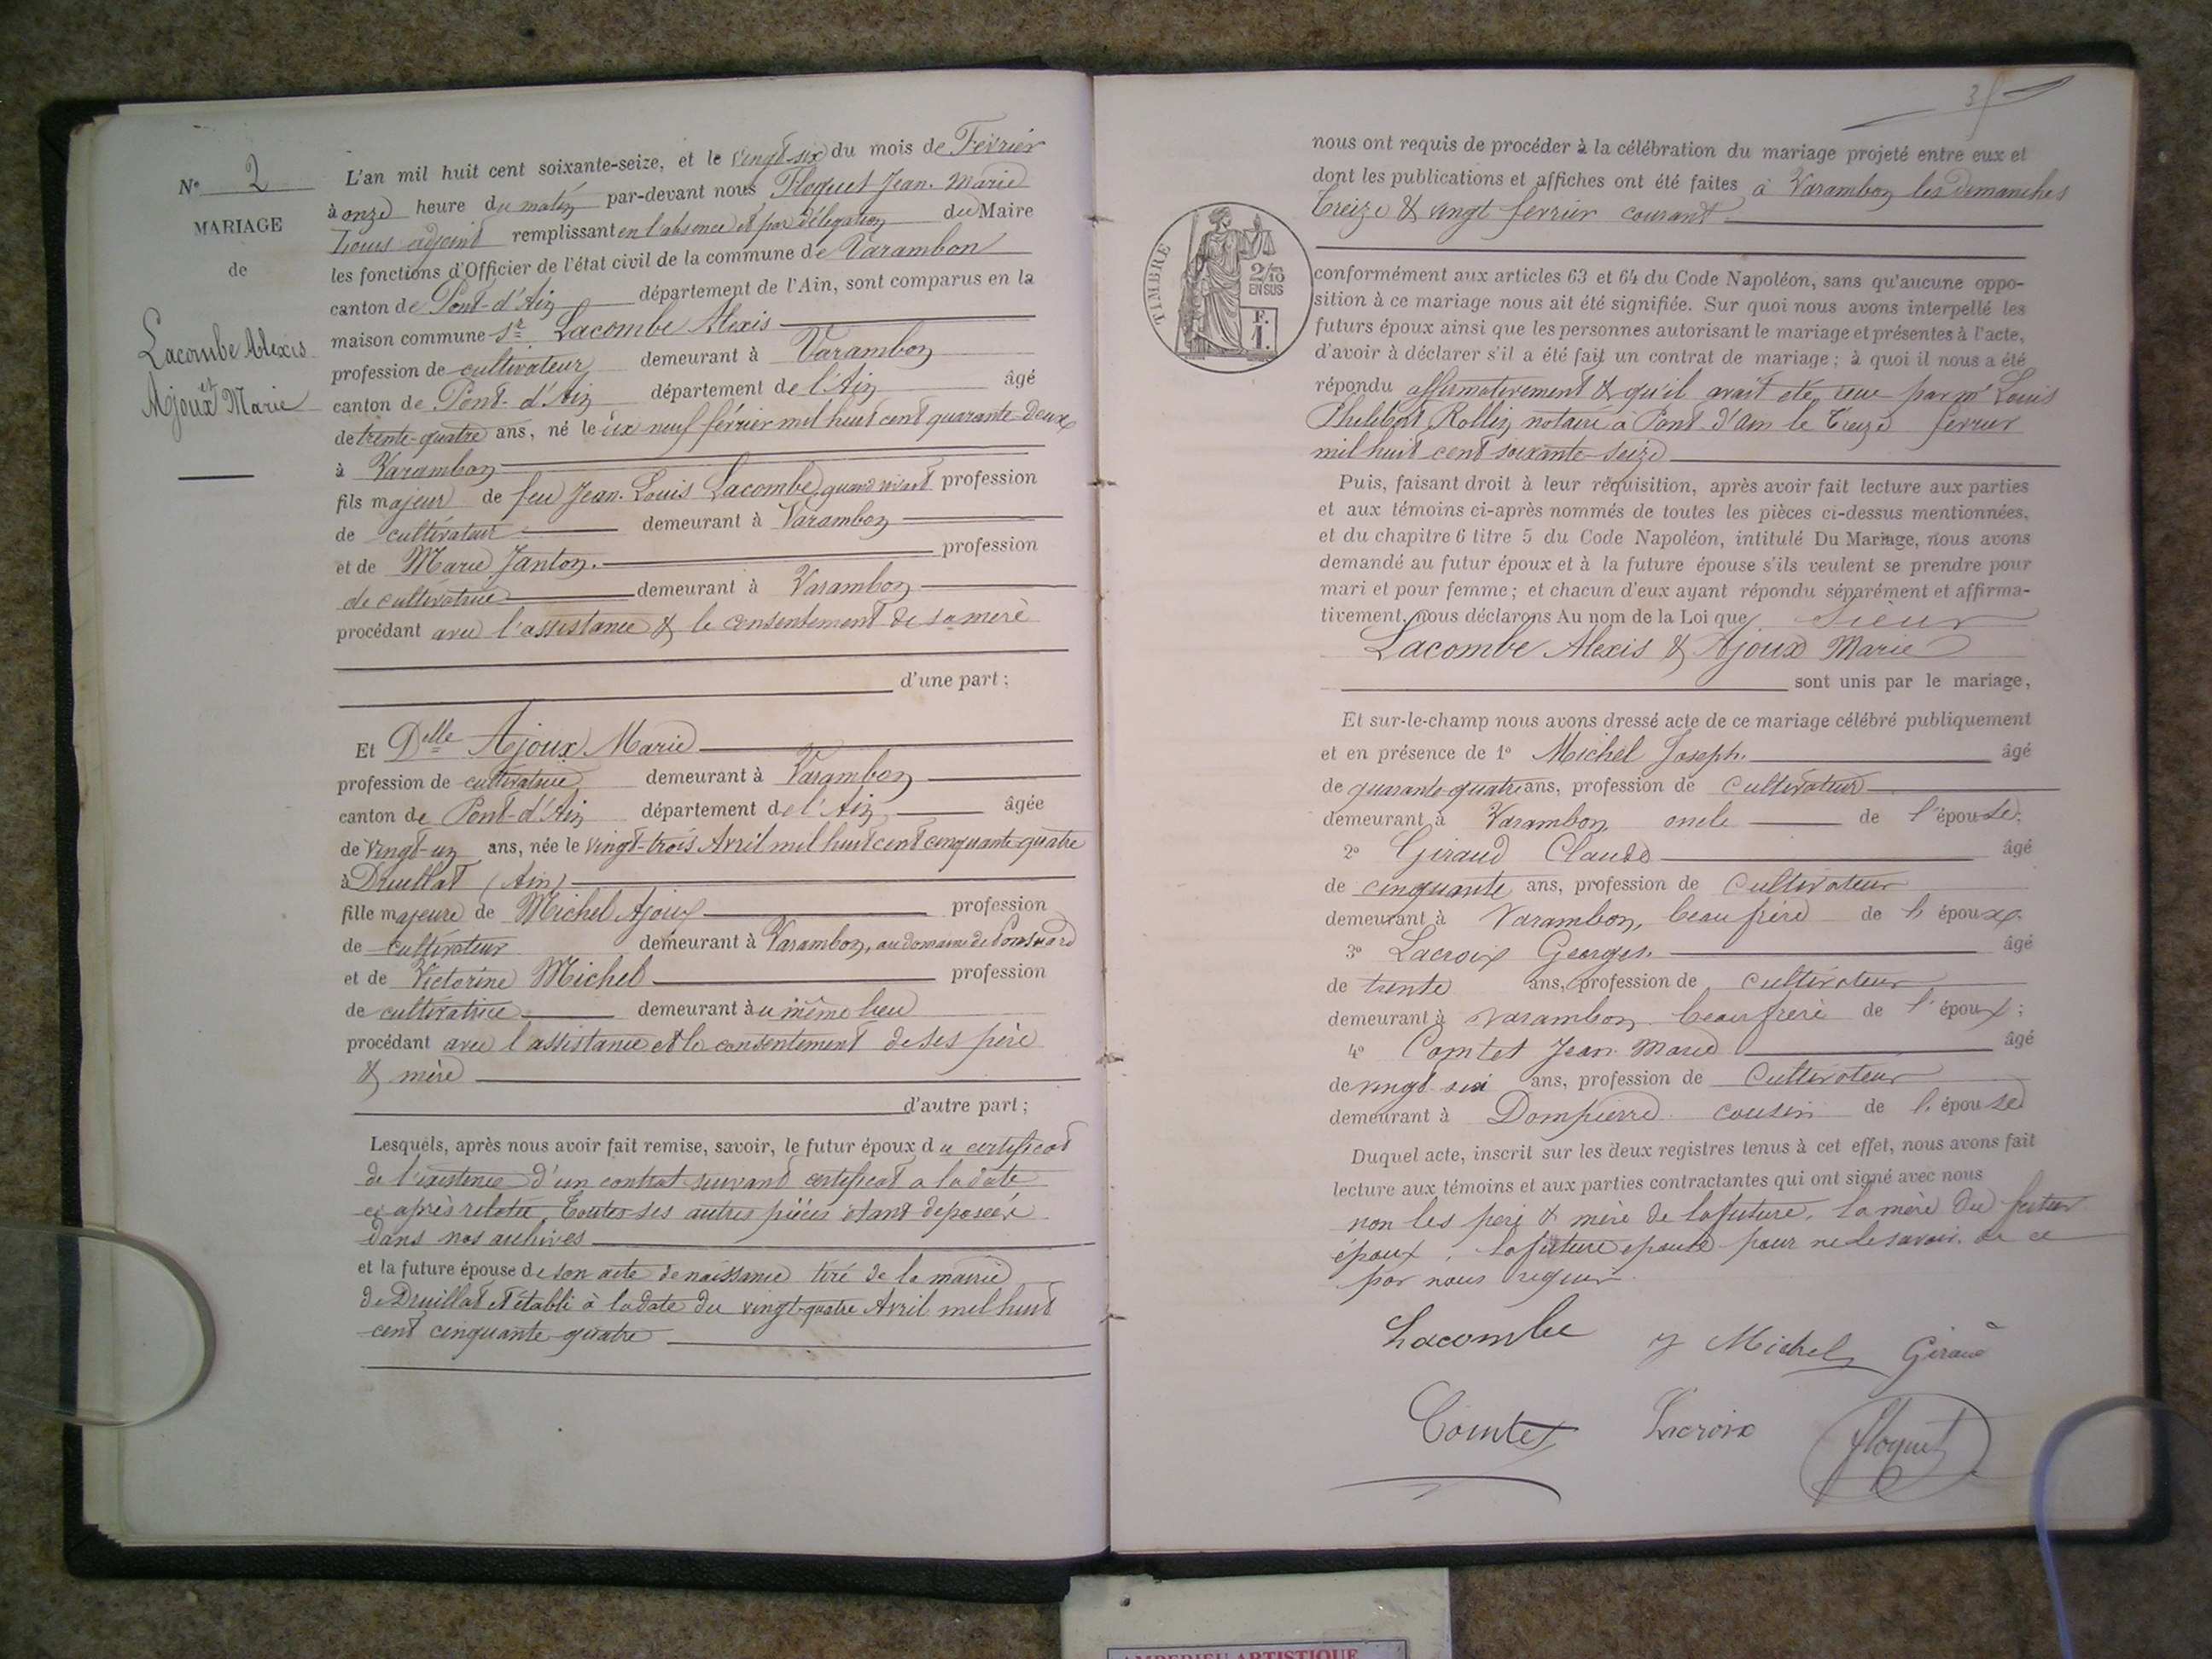 N° 2
MARIAGE
de
Lacombe Alexis
et
Ajoux Marie
L'an mil huit cent soixante-seize, et le vingt-six du mois de Février
à onze heure du matin par-devant nous Floquet Jean-Marie
adjoint remplissant en l'absence et par délégation du Maire
les fonctions d'Officier de l'état civil de la commune de Varambon
canton de Pont-d'Ain département de l'Ain, sont comparus en la
maison commune Sr Lacombe Alexis
profession de cultivateur demeurant à Varambon
canton de Pont-d'Ain département de l'Ain âgé
de trente-quatre ans, né le dix neuf février mil huit cent quarante-deux
à Varambon
fils majeur de feu Jean-Louis Lacombe, quand vivant profession
de cultivateur demeurant à Varambon
et de Marie Janton. profession
de cultivatrice demeurant à Varambon
procédant avec l'assistance & le consentement de sa mère
d'une part ;
Et Delle Ajoux Marie
profession de cultivatrice demeurant à Varambon
canton de Pont-d'Ain département de l'Ain âgée
de vingt-un ans, née le vingt-trois Avril mil huit cent cinquante-quatre
à Druillat (Ain)
fille majeure de Michel Ajoux profession
de cultivateur demeurant à Varambon, au domaine de
et de Victorine Michel profession
de cultivatrice demeurant au même lieu
procédant avec l'assistance et le consentement de ses père
& mère
d'autre part ;
Lesquels, après nous avoir fait remise, savoir, le futur époux du certificat
de l'existence d'un contrat suivant certificat a la date
ci après relatée, Toutes ses autres pièces étant deposées
dans nos archives
et la future épouse de son acte de naissance tiré de la mairie
de Druillat et établi à la date du vingt-quatre Avril mil huit
cent cinquante-quatre
3
nous ont requis de procéder à la célébration du mariage projeté entre eux et
dont les publications et affiches ont été faites à Varambon les dimanches
treize & vingt ferrier courant
TIMBRE
2/10
EN SUS
F.
1.
conformément aux articles 63 et 64 du Code Napoléon, sans qu'aucune oppo-
sition à ce mariage nous ait été signifiée. Sur quoi nous avons interpellé les
futurs époux ainsi que les personnes autorisant le mariage et présentes à l'acte,
d'avoir à déclarer s'il a été fait un contrat de mariage ; à quoi il nous a été
répondu affirmativement & qu'il avait été reçu par me Louis
Philibert Rollin notaire à Pont-d'Ain le treize ferrier
mil huit cent soixante-seize
Puis, faisant droit à leur réquisition, après avoir fait lecture aux parties
et aux témoins ci-après nommés de toutes les pièces ci-dessus mentionnées,
et du chapitre 6 titre 5 du Code Napoléon, intitulé Du Mariage, nous avons
demandé au futur époux et à la future épouse s'ils veulent se prendre pour
mari et pour femme ; et chacun d'eux ayant répondu séparément et affirma-
tivement, nous déclarons Au nom de la Loi que Sieur
Lacombe Alexis & Ajoux Marie
sont unis par le mariage,
Et sur-le-champ nous avons dressé acte de ce mariage célébré publiquement
et en présence de 1° Michel Joseph. âgé
de quarante-quatre ans, profession de Cultivateur
demeurant à Varambon oncle de l'épouse.
2° Giraud Claude âgé
de cinquante ans, profession de Cultivateur
demeurant à Varambon, beau frère de l'époux.
3° Lacroix Georges. âgé
de trente ans, profession de cultivateur
demeurant à Varambon beau frère de l'époux ;
4° Comtet Jean Marie âgé
de vingt six ans, profession de Cultivateur
demeurant à Dompierre cousin de l'épouse
Duquel acte, inscrit sur les deux registres tenus à cet effet, nous avons fait
lecture aux témoins et aux parties contractantes qui ont signé avec nous
non les père & mère de la future, la mère du futur
époux, la future epouse pour ne le savoir de ce
par nous requis
Lacombe J Michel Giraud
Comtet Lacroix Floquet
AMBERIEU ARTISTIQUE